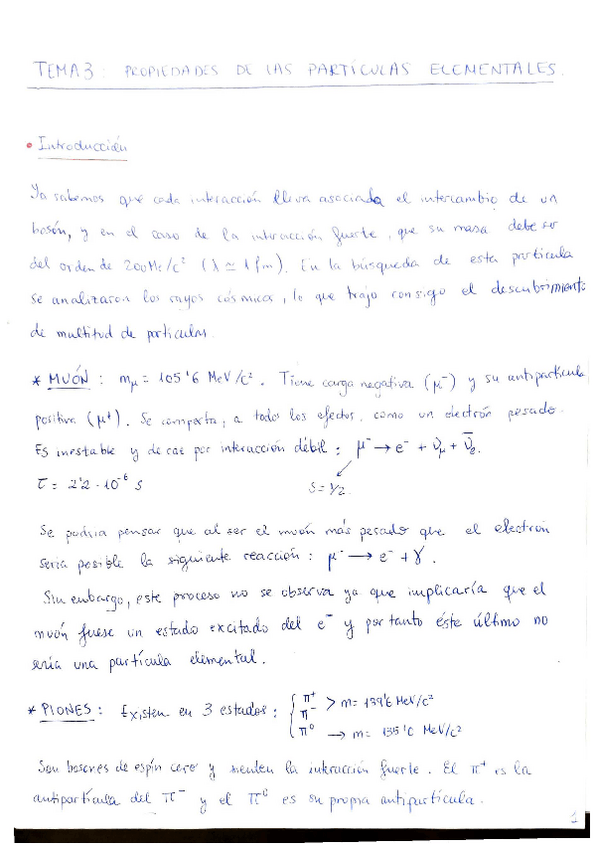 TEMA 3: PROPIEDADES DE LAS PARTÍCULAS ELEMENTALES.
• Introducción
Ya sabemos que cada interacción lleva asociada el intercambio de un
bosón, y en el caso de la interacción fuerte, que su masa debe ser
del orden de 200 Me/c² (λ ≃ 1 fm). En la búsqueda de esta partícula
se analizaron los rayos cósmicos, lo que trajo consigo el descubrimiento
de multitud de partículas.
* MUÓN: mμ = 105'6 MeV/c². Tiene carga negativa (μ⁻) y su antipartícula
positiva (μ⁺). Se comporta, a todos los efectos, como un electrón pesado.
Es inestable y decae por interacción débil: μ⁻ → e⁻ + νμ + ν̄e.
τ = 2'2 · 10⁻⁶ s
S = 1/2
Se podría pensar que al ser el muón más pesado que el electrón
sería posible la siguiente reacción: μ⁻ → e⁻ + γ.
Sin embargo, este proceso no se observa ya que implicaría que el
muón fuese un estado excitado del e⁻ y por tanto éste último no
sería una partícula elemental.
* PIONES: Existen en 3 estados: { π⁺ π⁻ > m = 139'6 MeV/c²
π⁰ → m = 135'0 MeV/c²
Son bosones de espín cero y sienten la interacción fuerte. El π⁺ es la
antipartícula del π⁻ y el π⁰ es su propia antipartícula.
1